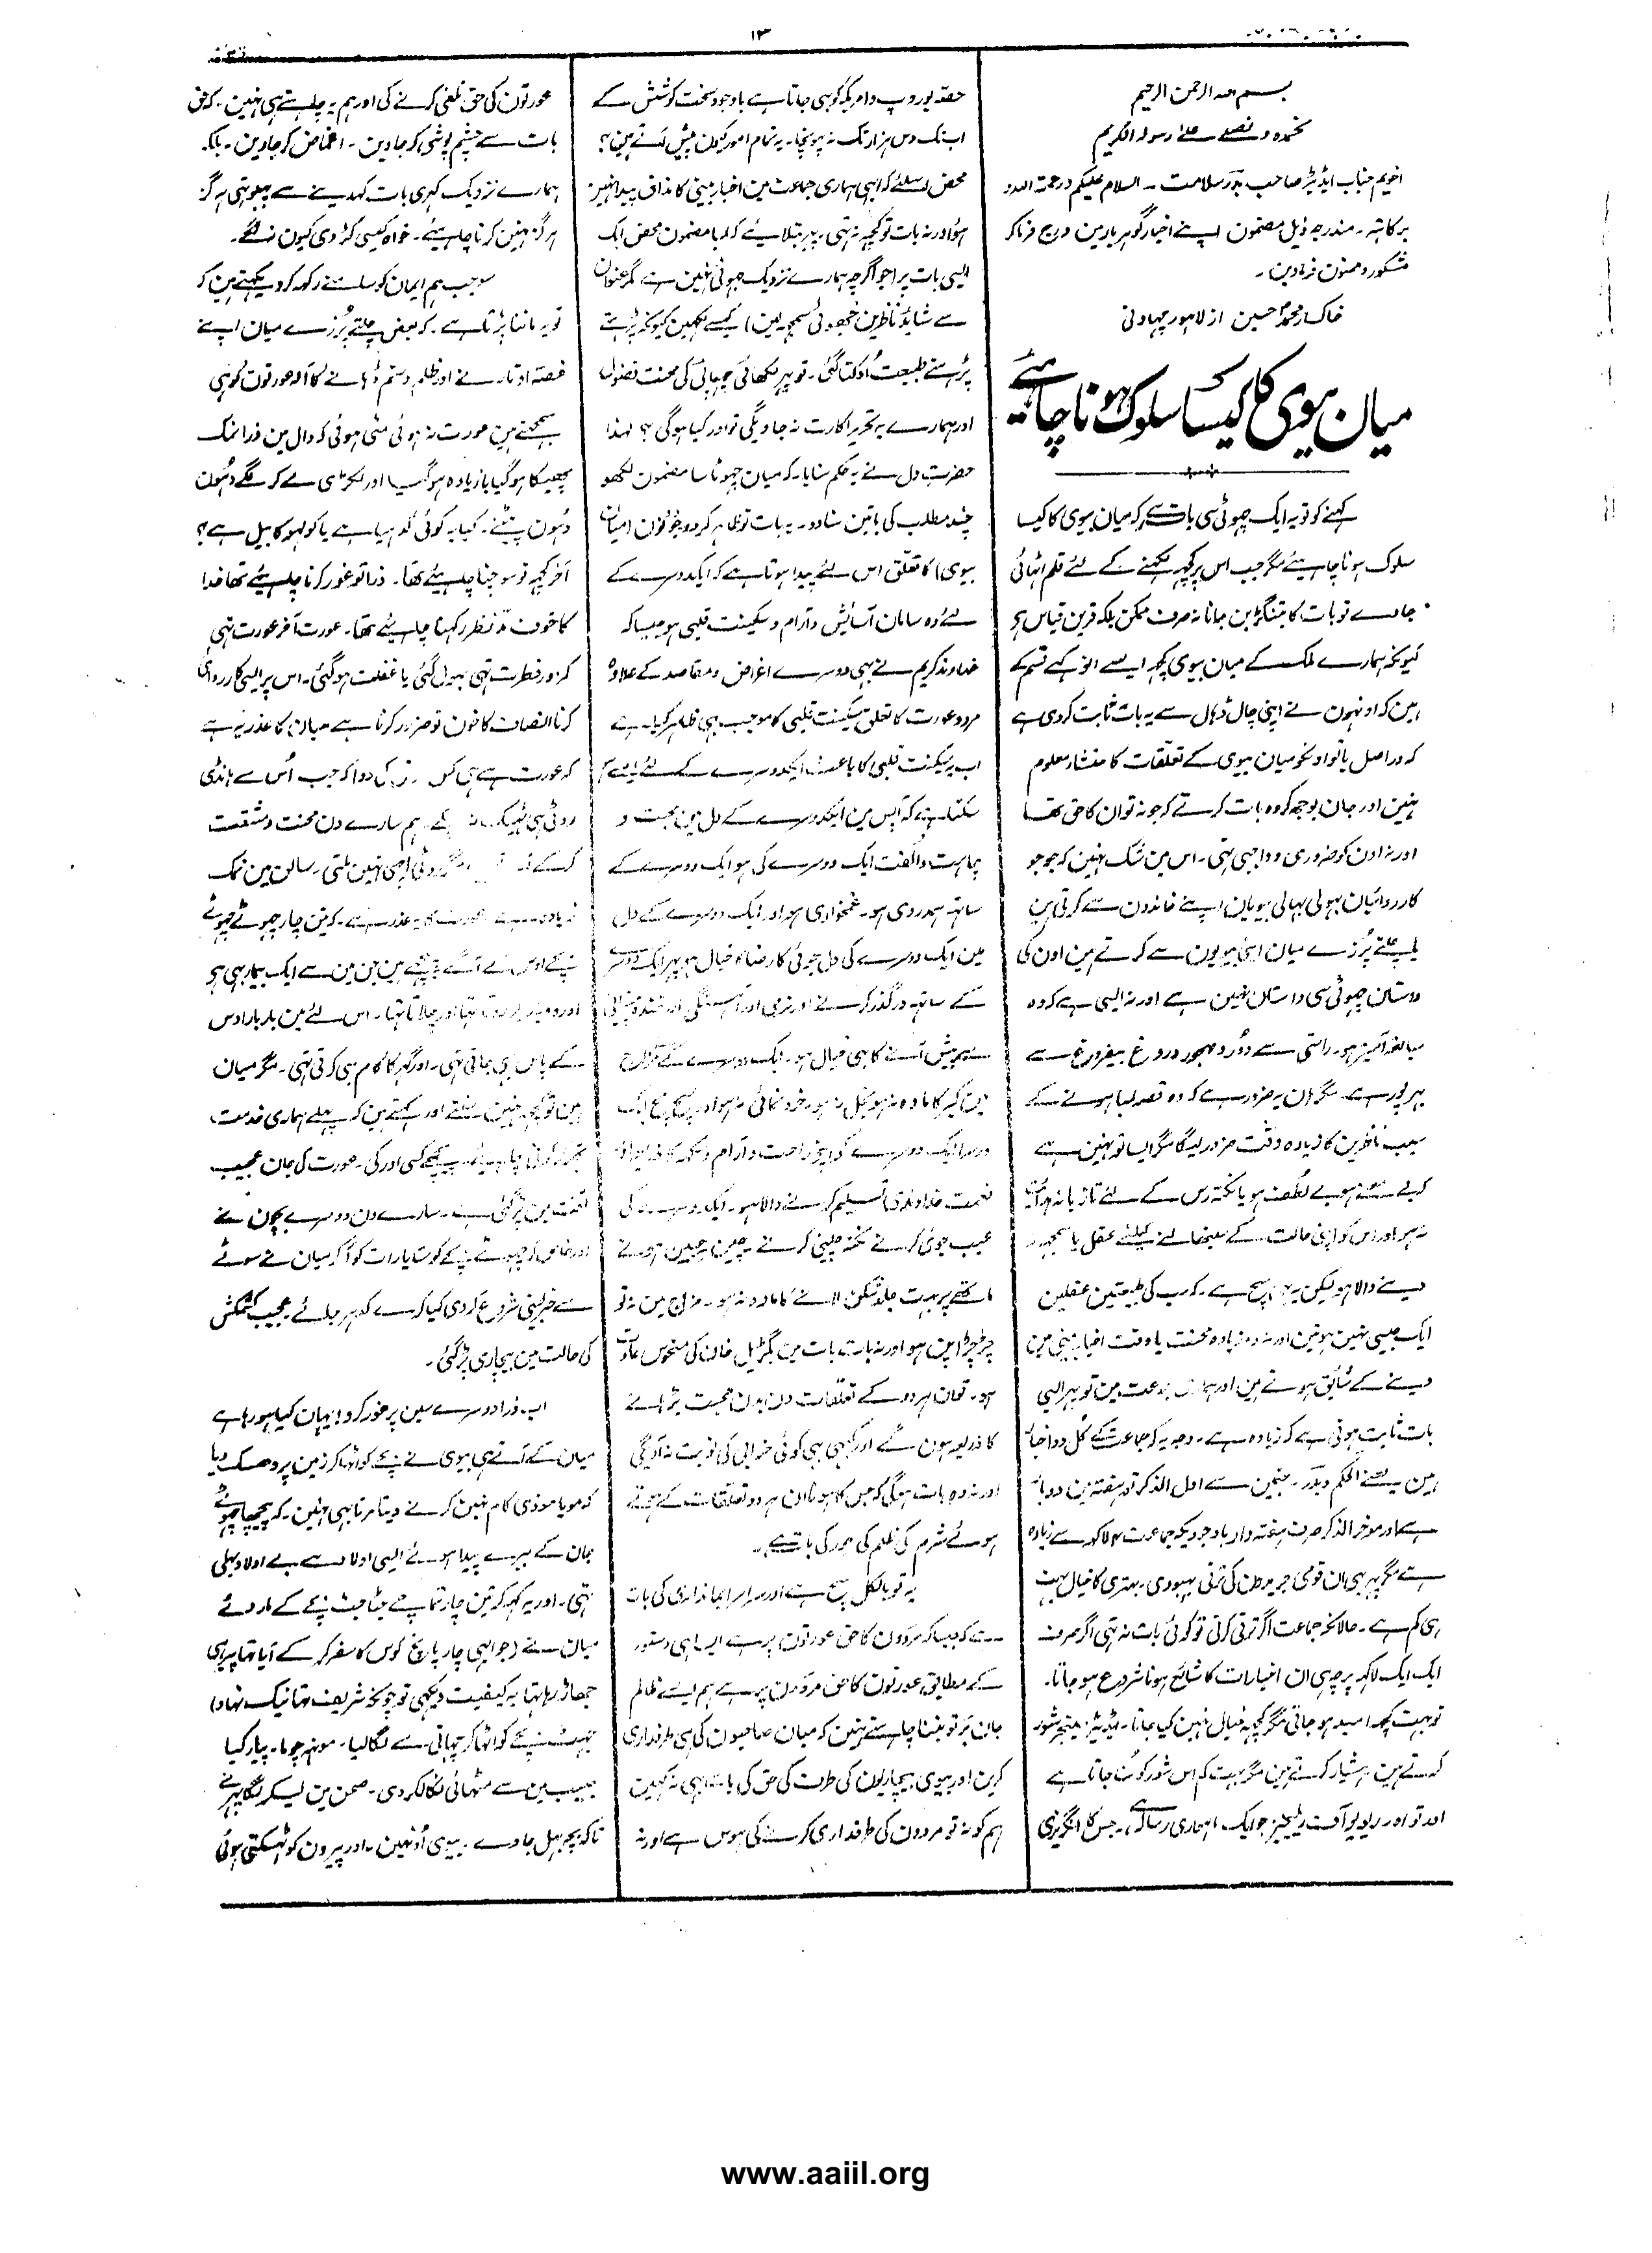 ۱۳
بسم اللہ الرحمن الرحیم
نحمدہ و نصلے علے رسولہ الکریم
اخویم جناب ایڈیٹر صاحب بدر سلامت ۔ السلام علیکم ورحمۃ اللہ و
برکاتہ ۔ مندرجہ ذیل مضمون اپنے اخبار گوہر بار مین درج فرماکر
مشکور و ممنون فرماوین ۔
خاکسار محمد حسین از لاہور چہاونی
میان بیوی کا کیسا سلوک ہونا چاہئیے
کہنے کو تو یہ ایک چہوٹی سی بات ہے کہ میان بیوی کا کیسا
سلوک ہونا چاہیئے مگر جب اس پر کچہہ لکہنے کے لئے قلم اٹہائی
جاوے تو بات کا بتنگڑ بن جانا نہ صرف ممکن بلکہ قرین قیاس ہے
کیونکہ ہمارے ملک کے میان بیوی کچہہ ایسے انوکہے قسم کے
ہین کہ اونہون نے اپنی چال ڈہال سے یہ بات ثابت کر دی ہے
کہ در اصل یا تو اونکو میان بیوی کے تعلقات کا منشاء معلوم
نہین اور جان بوجہہ کر وہ بات کرتے کہ جو نہ تو ان کا حق تھا
اور نہ اون کو ضروری و واجبی تہی ۔ اس مین شک نہین کہ جو جو
کارروائیان بہولی بہالی بیویان اپنے خاندون سے کرتی ہین
یا چلتے پرزے میان اپنی بیویون سے کرتے ہین اون کی
داستان چہوٹی سی داستان نہین ہے اور نہ ایسی ہے کہ وہ
مبالغہ آمیز ہو ۔ راستی سے دور و مہجور دروغ بیفروغ سے
بہرپور ہے ۔ مگر ہان یہ ضرور ہے کہ وہ قصہ لمبا ہونے کے
سبب ناظرین کا زیادہ وقت ضرور لیگا مگر ایسا تو نہین ہے
کہ بے لطف ہو یا نکتہ رس کے لئے تازیانہ ہدایت
نہ ہو اور اس کو اپنی حالت کے سنبھالنے کیلئے عقل یا سمجہہ نہ
دینے والا ہو لیکن یہ سچ ہے ۔ کہ سب کی طبیعتین عقلین
ایک جیسی نہین ہوتین اور نہ وہ زیادہ محنت یا وقت اخبار بینی مین
دینے کے شایق ہوتے ہین اور ہماری جماعت مین تو پہر ایسی
بات ثابت ہوتی ہے کہ زیادہ ہے ۔ وجہ یہ کہ جماعت کے کل دو اخبار
ہین یعنے الحکم و بدر ۔ جنمین سے اول الذکر تو ہفتہ مین دو بار
ہے اور موخر الذکر صرف ہفتہ وار باوجودیکہ جماعت ۴ لاکہہ سے زیادہ
ہے مگر پہر بہی ان قومی جریدون کی ترقی بہبودی ۔ بہتری کا خیال بہت
ہی کم ہے ۔ حالانکہ جماعت اگر ترقی کرتی تو کوئی بات نہ تہی اگر صرف
ایک ایک لاکہہ پرچہ ہی ان اخبارات کا شایع ہونا شروع ہو جاتا ۔
تو بہت کچہہ امید ہو جاتی مگر کچہہ خیال نہین کیا جاتا ۔ ایڈیٹر ۔ مینجر شور
کرتے ہین ۔ ہشیار کرتے ہین مگر بہت کم اس شور کو سنا جاتا ہے
اور تو اور ریویو آف ریلیجنز جو ایک ماہواری رسالہ ہے ۔ جس کا انگریزی
حصہ یوروپ و امریکہ کو بہی جاتا ہے باوجود سخت کوشش کے
ابتک دس ہزار تک نہ پہونچا ۔ یہ تمام امور کیون پیش آتے ہین ؟
محض اسلئے کہ ابہی ہماری جماعت مین اخبار بینی کا مذاق پیدا نہین
ہوا ورنہ بات تو کچہہ نہ تہی ۔ پہر بتلایئے کہ لمبا مضمون محض ایک
ایسی بات پر (جو اگرچہ ہمارے نزدیک چہوٹی نہین ہے مگر عنوان
سے شاید ناظرین چھوٹی سمجہہ لین) کیسے لکہین کیونکہ پڑہتے
پڑہتے طبیعت اوکتا گئی ۔ تو پہر لکھائی چہپائی کی محنت فضول
اور ہمارے یہ تحریر اکارت نہ جاویگی تو اور کیا ہوگی ؟ لہذا
حضرت دل نے یہ حکم سنایا ۔ کہ میان چہوٹا سا مضمون لکھو
چند مطلب کی باتین سنا دو ۔ یہ بات تو ظاہر کر دو کہ ان (میان
بیوی) کا تعلق اس لئے پیدا ہوتا ہے کہ ایکدوسرے کے
لئے وہ سامان آسایش و آرام و سکینت قلبی ہو جیسا کہ
خداوند کریم نے بہی دوسرے اغراض و مقاصد کے علاوہ
مرد و عورت کا تعلق سکینت قلبی کا موجب بہی ظاہر کیا ہے
اب یہ سکینت قلبی کا باعث ایکدوسرے کے لئے ایسے ہو
سکتا ہے کہ آپس مین ایکدوسرے کے دل مین محبت و
چاہت و الفت ایک دوسرے کی ہو ایک دوسرے کے
ساتہہ ہمدردی ہو ۔ غمخواری ہو اور ایک دوسرے کے دل
مین ایک دوسرے کی دل جوئی کا رضاء خیال ہو پہر ایک دوسرے
کے ساتہہ درگذر کرنے اور نرمی اور آہستگی اور خندہ پیشانی
سے پیش آنے کا بہی خیال ہو ۔ ایک دوسرے کے مزاج
مین کبر کا مادہ نہ ہو بخل نہ ہو ۔ خود نمائی نہ ہو اور سچ مچ ایک
دوسرا ایک دوسرے کو اپنی راحت و آرام
نعمت خداوندی تسلیم کرنے والا ہو ۔ ایکدوسرے کی
عیب جوئی کرنے نکتہ چینی کرنے چین جبین ہونے
ماتہے پر بہت جلد شکن لانے کا مادہ نہ ہو ۔ مزاج مین نہ تو
چڑچڑا پن ہو اور نہ بات بات مین بگڑیل خان کی منحوس عادت
ہو ۔ تو ان ہردو کے تعلقات دن بدن محبت بڑہانے
کا ذریعہ ہون گے اور کبہی بہی کوئی خرابی کی نوبت نہ آویگی
اور نہ وہ بات ہوگی کہ جس کا ہونا ان ہر دو تعلقات کے ہوتے
ہوئے شرم کی ظلم کی جور کی بات ہے ۔
یہ تو بالکل سچ ہے اور سراسر ایمانداری کی بات
ہے کہ جیسا کہ مردون کا حق عورتون پر ہے ایسا ہی دستور
کے مطابق عورتون کا حق مردون پر ہے ہم ایسے ظالم
جان بر تو بننا چاہتے نہین کہ میان صاحبون کی ہی طرفداری
کرین اور بیوی بیچاریون کی طرف کی حق کی بات بہی نہ کہین
ہم کو نہ تو مردون کی طرفداری کرنے کی ہوس ہے اور نہ
عورتون کی حق تلفی کرنے کی اور ہم یہ چاہتے ہی نہین ۔ کہ حق
بات سے چشم پوشی کر جاوین ۔ اغماض کر جاوین ۔ بلکہ
ہمارے نزدیک کہری بات کہدینے سے پہلوتہی ہرگز
ہرگز نہین کرنا چاہیئے ۔ خواہ کیسی کڑوی کیون نہ لگے ۔
سو جب ہم ایمان کو سامنے رکہہ کر دیکہتے ہین کہ
تو یہ ماننا پڑتا ہے ۔ کہ بعض چلتے پرزے میان اپنے
غصہ اوتارنے اور ظلم و ستم ڈہانے کا آلہ عورتون کو ہی
سمجہتے ہین عورت نہ ہوئی مٹی ہوئی کہ دال مین ذرا نمک
پھیکا ہو گیا یا زیادہ ہو گیا اور لکڑی لے کر لگے دہون
دہون پیٹنے ۔ کیا یہ کوئی گدہیا ہے یا کولہو کا بیل ہے ؟
آخر کچہہ تو سوچنا چاہیئے تھا ۔ ذرا تو غور کرنا چاہیئے تھا خدا
کا خوف مد نظر رکہنا چاہیئے تھا ۔ عورت آخر عورت تہی
کمزور فطرت تہی بہول گئی یا غفلت ہو گئی ۔ اس پر ایسی کارروائی
کرنا انصاف کا خون تو ضرور کرنا ہے میان کا عذر یہ ہے
کہ عورت ہے ہی کس کی دوا کہ جب اس سے ہانڈی
روٹی ہی ٹہیک ہم سارے دن محنت و مشقت
کرکے اچہی نہین ملتی ۔ سالن مین نمک
زیادہ ہے عورت کا یہ عذر ہے ۔ کہ تین چار چہوٹے چہوٹے
بچے اوس کے آگے پیچہے ہین جن مین سے ایک بیمار بہی ہو
اور وہ بیمار روتا تہا اور چلاتا تہا ۔ اس لئے مین بار بار اوس
کے پاس ہی جاتی تہی ۔ اور گہر کا کام بہی کرتی تہی ۔ مگر میان
ہین تو کچہہ نہین سنتے اور کہتے ہین کہ پہلے ہماری خدمت
تجہکو کرنی چاہیئے پیچہے کسی اور کی ۔ عورت کی جان عجیب
آفت مین پڑ گئی ہے ۔ سارے دن دوسرے بچون نے
اور خاص کر چہوٹے بچے کو ستایا رات کو آکر میان نے سوٹے
سے خبر لینی شروع کر دی کیا کرے کدہر جائے عجیب کشمکش
کی حالت مین بیچاری پڑ گئی ۔
اب ذرا دوسرے سین پر غور کرو ! یہان کیا ہو رہا ہے
میان کے آتے ہی بیوی نے بچے کو اٹہا کر زمین پر دہسک دیا
کہ مویا موذی کام نہین کرنے دیتا مرتا بہی نہین ۔ کہ پیچہا چہوٹے
جان کے بیرے پیدا ہوئے ایسی اولاد سے بے اولاد بہلی
تہی ۔ اور یہ کہہ کر تین چار تماچے چٹاچٹ بچے کے مار دئے
میان نے (جو ابہی چار پانچ کوس کا سفر کر کے آیا تہا پسینہ ہی
جہاڑ رہا تہا یہ کیفیت دیکہی تو چونکہ شریف تہا نیک نہاد)
جہٹ بچے کو اٹہا کر چہاتی سے لگا لیا ۔ مونہہ چوما ۔ پیار کیا
جیب مین سے مٹہائی نکالکر دی ۔ صحن مین لیکر لگا پہرنے
تاکہ بچہ بہل جاوے ۔ بیوی اوٹہین ۔ اور پیرون کو ٹہسکتی ہوئی
www.aaiil.org